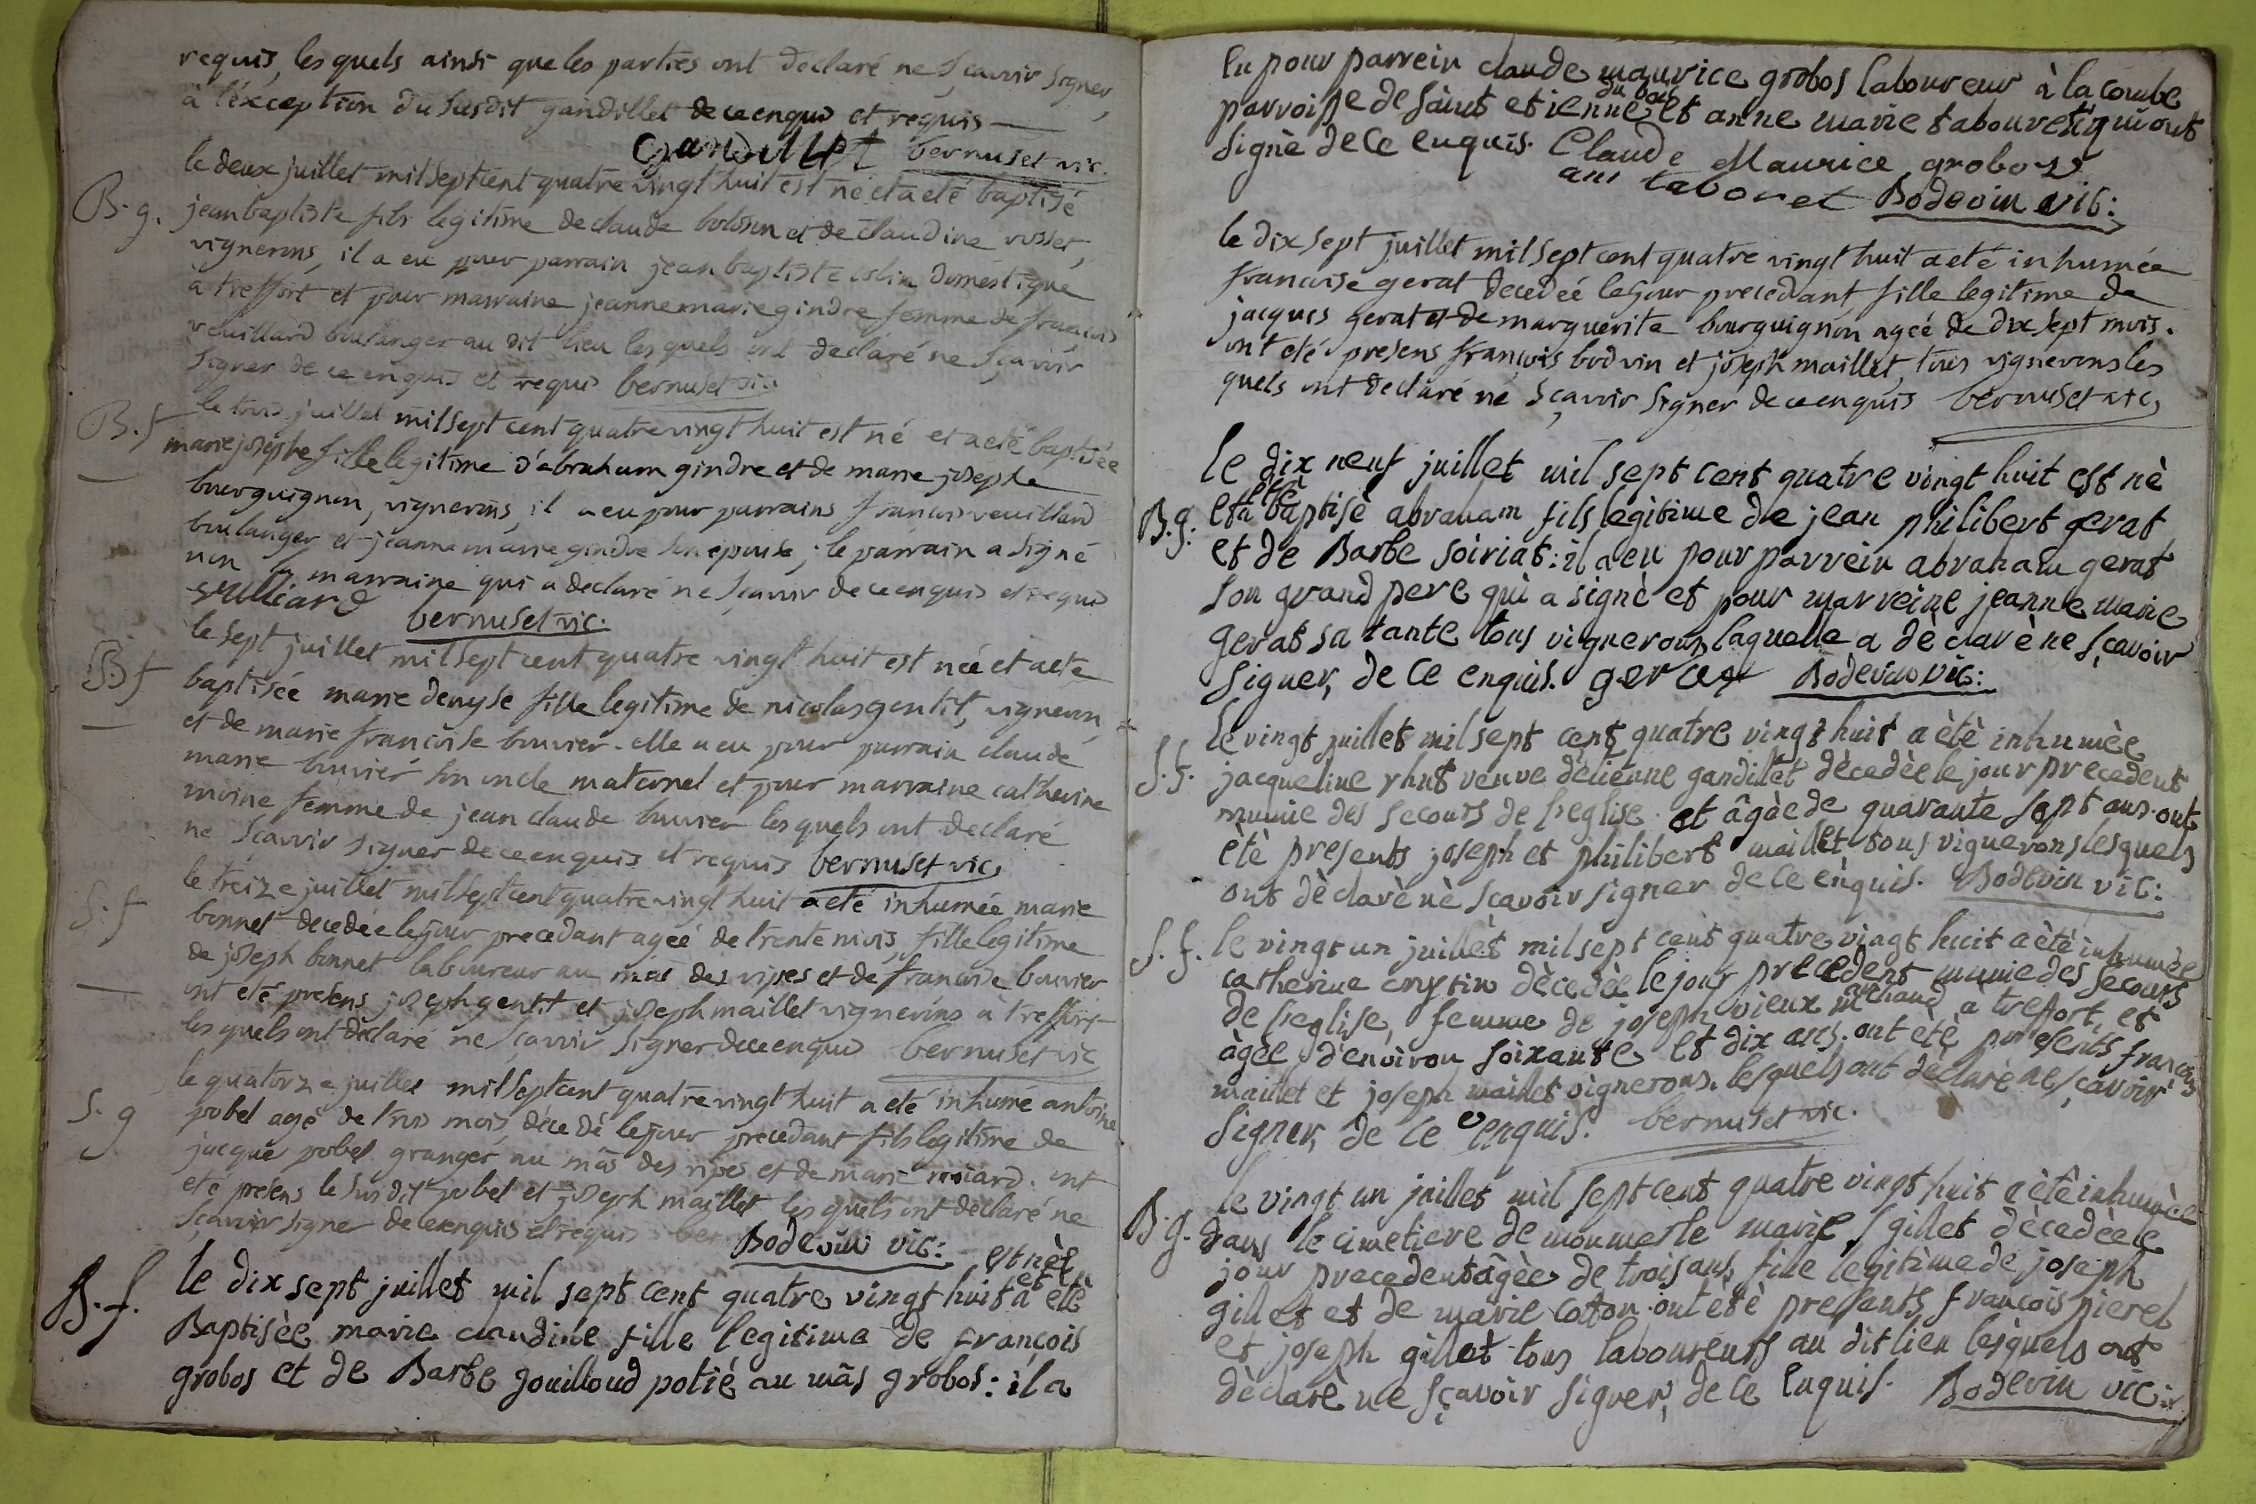 requis, les quels ainsi que les parties ont declaré ne sçavoir signer,
à l'exception du susdit gandillet de ce enquis et requis
Gandillet bernuset vic.
le deux juillet mil sept cent quatre vingt huit est né et a eté baptisé
B. g. jean baptiste fils legitime de claude et de claudine rosset,
vignerons, il a eu pour parrain jean baptiste colin domestique
à treffort et pour marraine jeanne marie gindre femme de françois
veuillard boulanger au dit lieu les quels ont declaré ne sçavoir
signer de ce enquis et requis bernuset vic
B. f le trois juillet mil sept cent quatre vingt huit est né et a eté baptisée
marie josephe fille legitime d'abraham gindre et de marie josephe
bourguignon, vignerons, il a eu pour parrains francois veuillard
boulanger et jeanne marie gindre son epouse; le parrain a signé
non la marraine qui a declaré ne sçavoir de ce enquis et requis
bernuset vic.
le sept juillet mil sept cent quatre vingt huit est née et a ete
B. f baptisée marie denyse fille legitime de nicolas gentit, vigneron,
et de marie françoise bouvier. elle a eu pour parrain claude
marie bouvier son oncle maternel et pour marraine catherine
moine femme de jean claude bouvier les quels ont declaré
ne sçavoir signer de ce enquis et requis bernuset vic,
le treize juillet mil sept cent quatre vingt huit a eté inhumée marie
S. f bonnet decedée le jour precedant ageé de trente mois, fille legitime
de joseph bonnet laboureur au mas des ripes et de francoise bouvier
ont eté presens joseph gentit et joseph maillet vignerons a treffort
les quels ont declaré ne sçavoir signer de ce enquis bernuset vic
le quatorze juillet mil sept cent quatre vingt huit a eté inhumé antoine
S. g pobel agé de trois mois, décedé le jour precedant fils legitime de
jacque pobel granger au mâs des ripes et de marie moiard. ont
eté presens le susdit pobel et joseph maillet les quels ont declaré ne
sçavoir signer de ce enquis et requis
Bodevin vic: est née
B. f. le dix sept juillet mil sept cent quatre vingt huit a et etè
Baptisèe marie claudine fille legitime de françois
grobos et de Barbe gouilloud potié au mâs grobos: il a
eu pour parrein claude maurice grobos laboureur à la combe
du bois
parroisse de saint etienne et anne marie tabouret qui ont
signè de ce enquis. Claude Maurice grobos
ani taboret Bodevin vic:
le dix sept juillet mil sept cent quatre vingt huit a eté inhumée
francoise gerat decedeé le jour precedant fille legitime de
jacques gerat et de marguerite bourguignon ageé de dix sept mois.
ont eté presens francois bodvin et joseph maillet, tous vignerons les
quels ont declaré ne sçavoir signer de ce enquis bernuset vic,
le dix neuf juillet mil sept cent quatre vingt huit est nè
etè
B. g. et a baptisè abraham fils legitime de jean philibert gerat
et de Barbe soiriat: il a eu pour parrein abraham gerat
son grand pere qui a signè et pour marreine jeanne marie
gerat sa tante tous vignerons, laquelle a dèclarè ne sçavoir
signer, de ce enquis. gerat Bodevin vic:
le vingt juillet mil sept cent quatre vingt huit a ètè inhumèe
S. f. jacqueline veuve d'etienne gandillet dècedèe le jour precedent
munie des secours de l'eglise. et âgèe de quarante sept ans. ont
ètè presents joseph et philibert maillet tous vignerons lesquels
ont dèclarè nè sçavoir signer de ce enquis. Bodevin vic:
S. f. le vingt un juillet mil sept cent quatre vingt huit a ètè inhumèe
catherine dècedèe le jour precedent munie des secours
de l'eglise, femme de joseph vieux marchand a trefort, et
âgèe d'environ soixante et dix ans. ont etè presents françois
maillet et joseph maillet vignerons. lesquels ont dèclarè ne sçavoir
signer, de ce enquis. bernuset vic.
le vingt un juillet mil sept cent quatre vingt huit a ètè inhumèe
B. g. dans le cimetiere de monmerle marie gillet dècedèe le
jour precedent âgèe de trois ans, fille legitime de joseph
gillet et de marie coton. ont ètè presents françois pierel
et joseph gillet tous laboureurs au dit lieu lesquels ont
dèclarè ne sçavoir signer, de ce enquis. Bodevin vic: